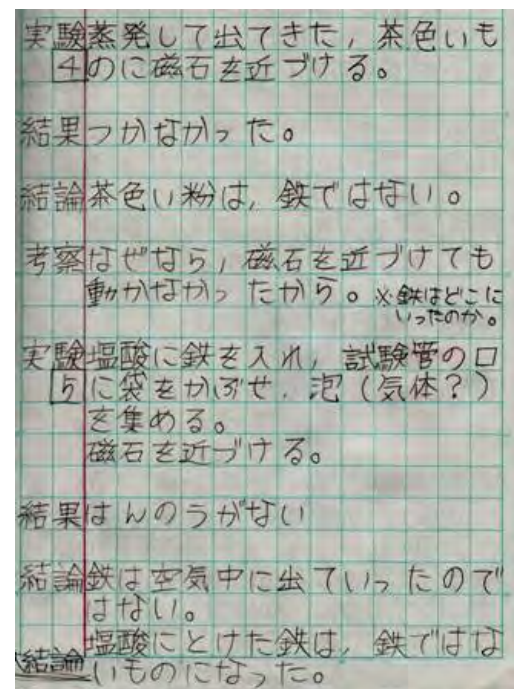 実験蒸発して出てきた,茶色いも
4のに磁石を近づける。
結果つかなかった。
結論茶色い粉は,鉄ではない。
考察なぜなら,磁石を近づけても
動かなかったから。※鉄はどこに
いったのか。
実験塩酸に鉄を入れ,試験管の口
5に袋をかぶせ.泡(気体?)
を集める。
磁石を近づける。
結果はんのうがない
結論鉄は空気中に出ていったので
はない。
塩酸にとけた鉄は,鉄ではな
結論いものになった。